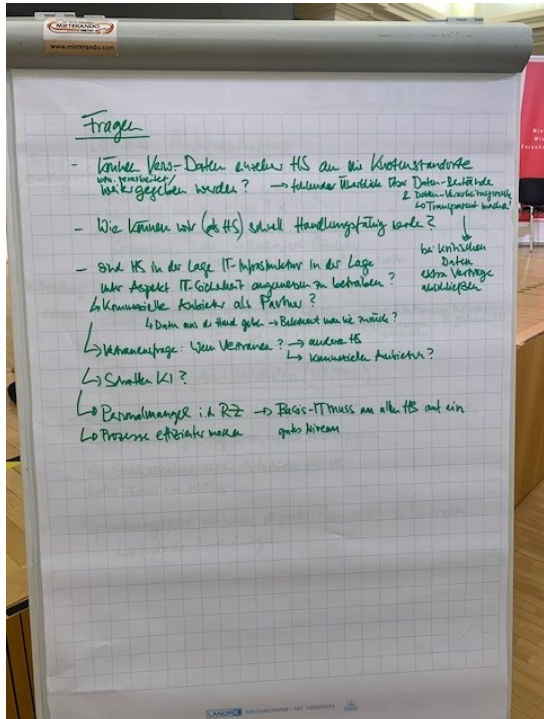 MIETERANDO
www.mieterando.com
Fragen
- können Verw-Daten einzelner HS an die Knotenstandorte
bzw. verarbeitet/
weitergegeben werden? → fehlender Überblick über Daten-Bestände
& Daten-Verarbeitungsprozesse
↳ Transparent machen!
- Wie können wir (als HS) schnell Handlungsfähig werden?
bei kritischen
Daten
extra Verträge
abschließen
- sind HS in der Lage IT-Infrastruktur in der Lage
unter Aspekt IT-Sicherheit angemessen zu betreiben?
↳ Kommerzielle Anbieter als Partner?
↳ Daten aus der Hand geben → Bekommt man sie zurück?
↳ Vertrauensfrage: Wem Vertrauen? → andere HS
→ kommerziellen Anbietern?
↳ Schatten KI?
↳ Personalmangel i.d. RZ → Basis-IT muss an allen HS auf ein
↳ Prozesse effizienter machen gutes Niveau
LANDRÉ